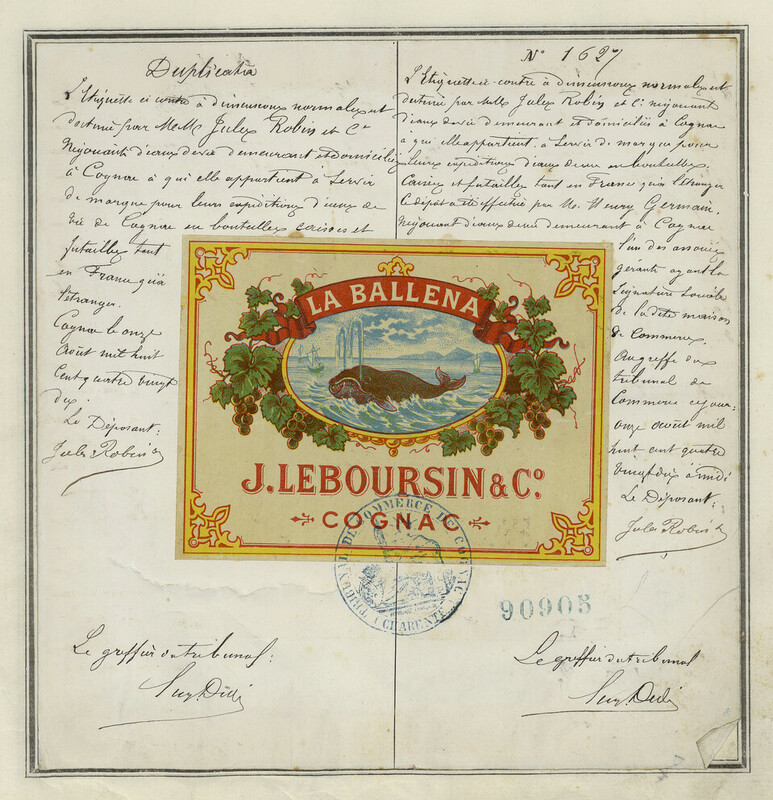 Duplicata
L'Etiquette ci contre à dimensions normales est
destinée par MM. Jules Robin et Cie
Négociants d'eaux de vie demeurant et domiciliés
à Cognac à qui elle appartient à servir
de marque pour leurs expéditions d'eaux de
vie de Cognac en bouteilles caisses et
futailles tant
en France qu'à
l'étranger.
Cognac le onze
Août mil huit
cent quatre vingt
dix.
Le Déposant:
Jules Robin
Le greffier du tribunal:
No 1627
L'Etiquette ci-contre à dimensions normales est
destinée par MM. Jules Robin et Cie négociants
d'eaux de vie demeurant et domiciliés à Cognac
à qui elle appartient, à servir de marque pour
leurs expéditions d'eaux de vie en bouteilles,
Caisses et futailles tant en France qu'à l'étranger
le dépôt a été effectué par M. Henry Germain,
Négociant d'eaux de vie demeurant à Cognac
l'un des associés
gérants ayant la
Signature Sociale
de la dite maison
de Commerce.
Au greffe du
tribunal de
Commerce ce jour:
onze août mil
huit cent quatre
vingt dix à midi
Le Déposant:
Jules Robin
Le greffier du tribunal
LA BALLENA
J. LEBOURSIN & Co.
COGNAC
TRIBUNAL DE COMMERCE DE COGNAC
(CHARENTE)
90905